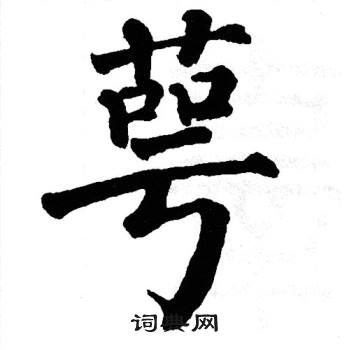 萼
词典网